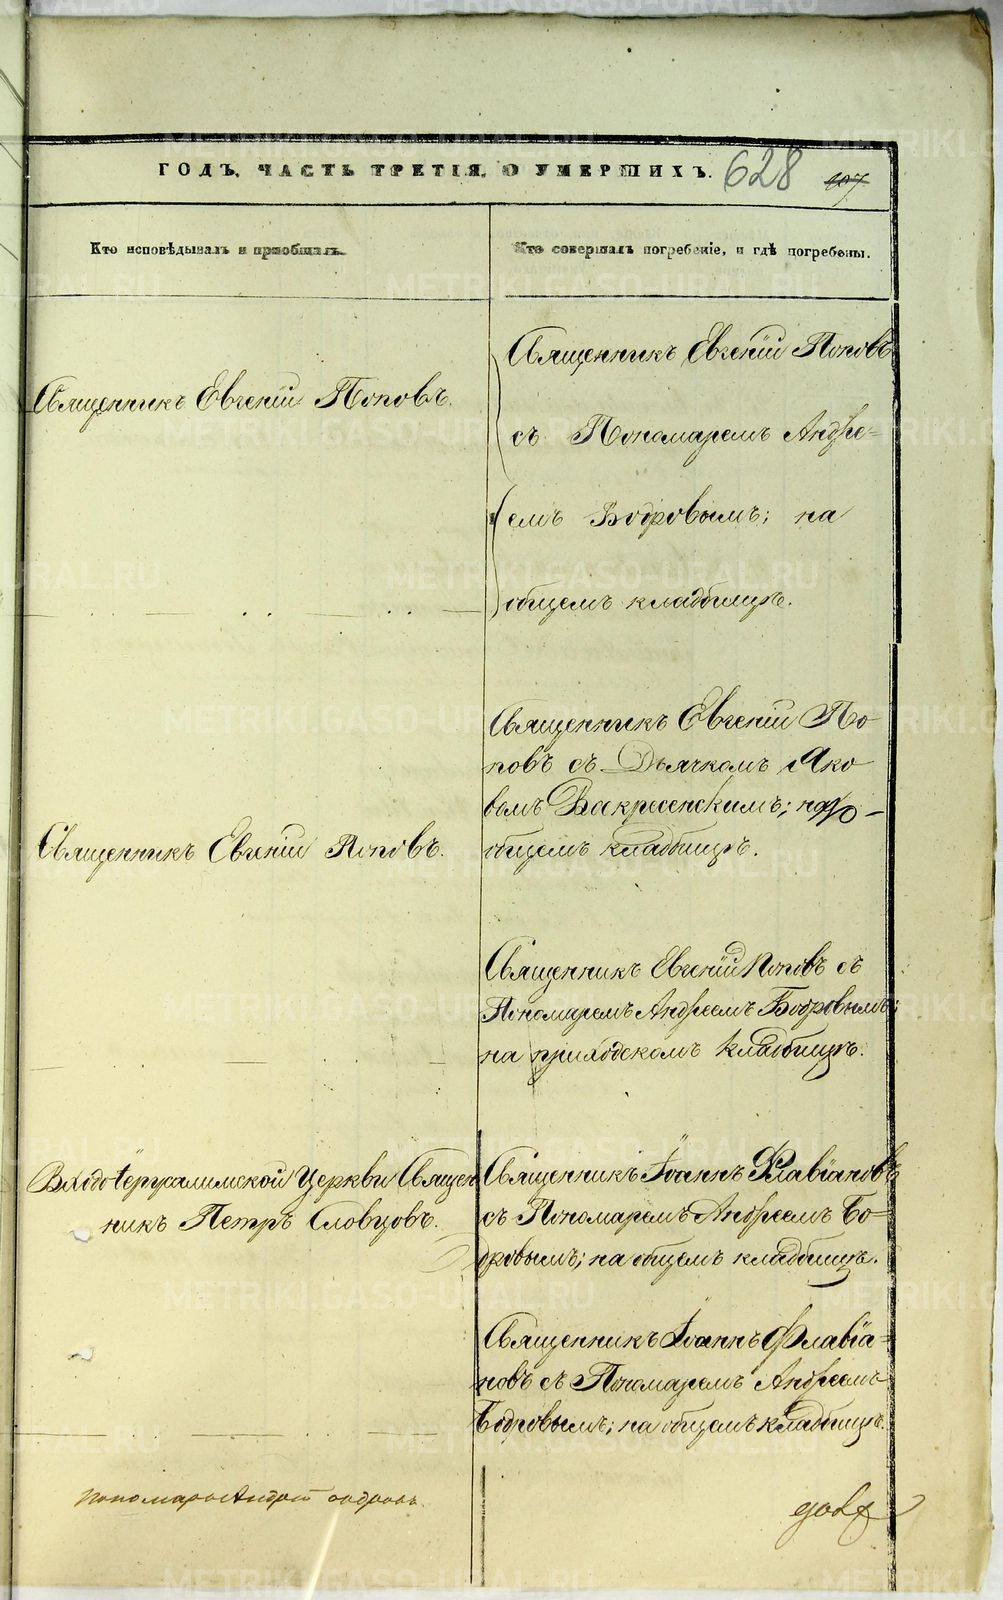 ГОДЪ, ЧАСТЬ ТРЕТІЯ, О УМЕРШИХЪ. 628
Кто исповѣдывалъ и пріобщалъ.
Кто совершалъ погребеніе, и гдѣ погребены.
Священникъ Евгеній Поповъ.
Священникъ Евгеній Поповъ
съ Пономаремъ Андре=
емъ Бодровымъ; на
общемъ кладбищѣ.
Священникъ Евгеній Поповъ.
Священникъ Евгеній По-
повъ съ Дьячкомъ Яко
вомъ Воскресенскимъ; на
общемъ кладбищѣ.
Священникъ Евгеній Поповъ съ
Пономаремъ Андреемъ Бодровымъ;
на приходскомъ кладбищѣ.
Входоіерусалимской Церкви Священ
никъ Петръ Словцовъ.
Священникъ Іоаннъ Флавіановъ
съ Пономаремъ Андреемъ Бо=
дровымъ; на общемъ кладбищѣ.
Священникъ Іоаннъ Флавіа=
новъ съ Пономаремъ Андреемъ
Бодровымъ; на общемъ кладбищѣ.
пономарь Андрей бодровъ.
METRIKI.GASO-URAL.RU